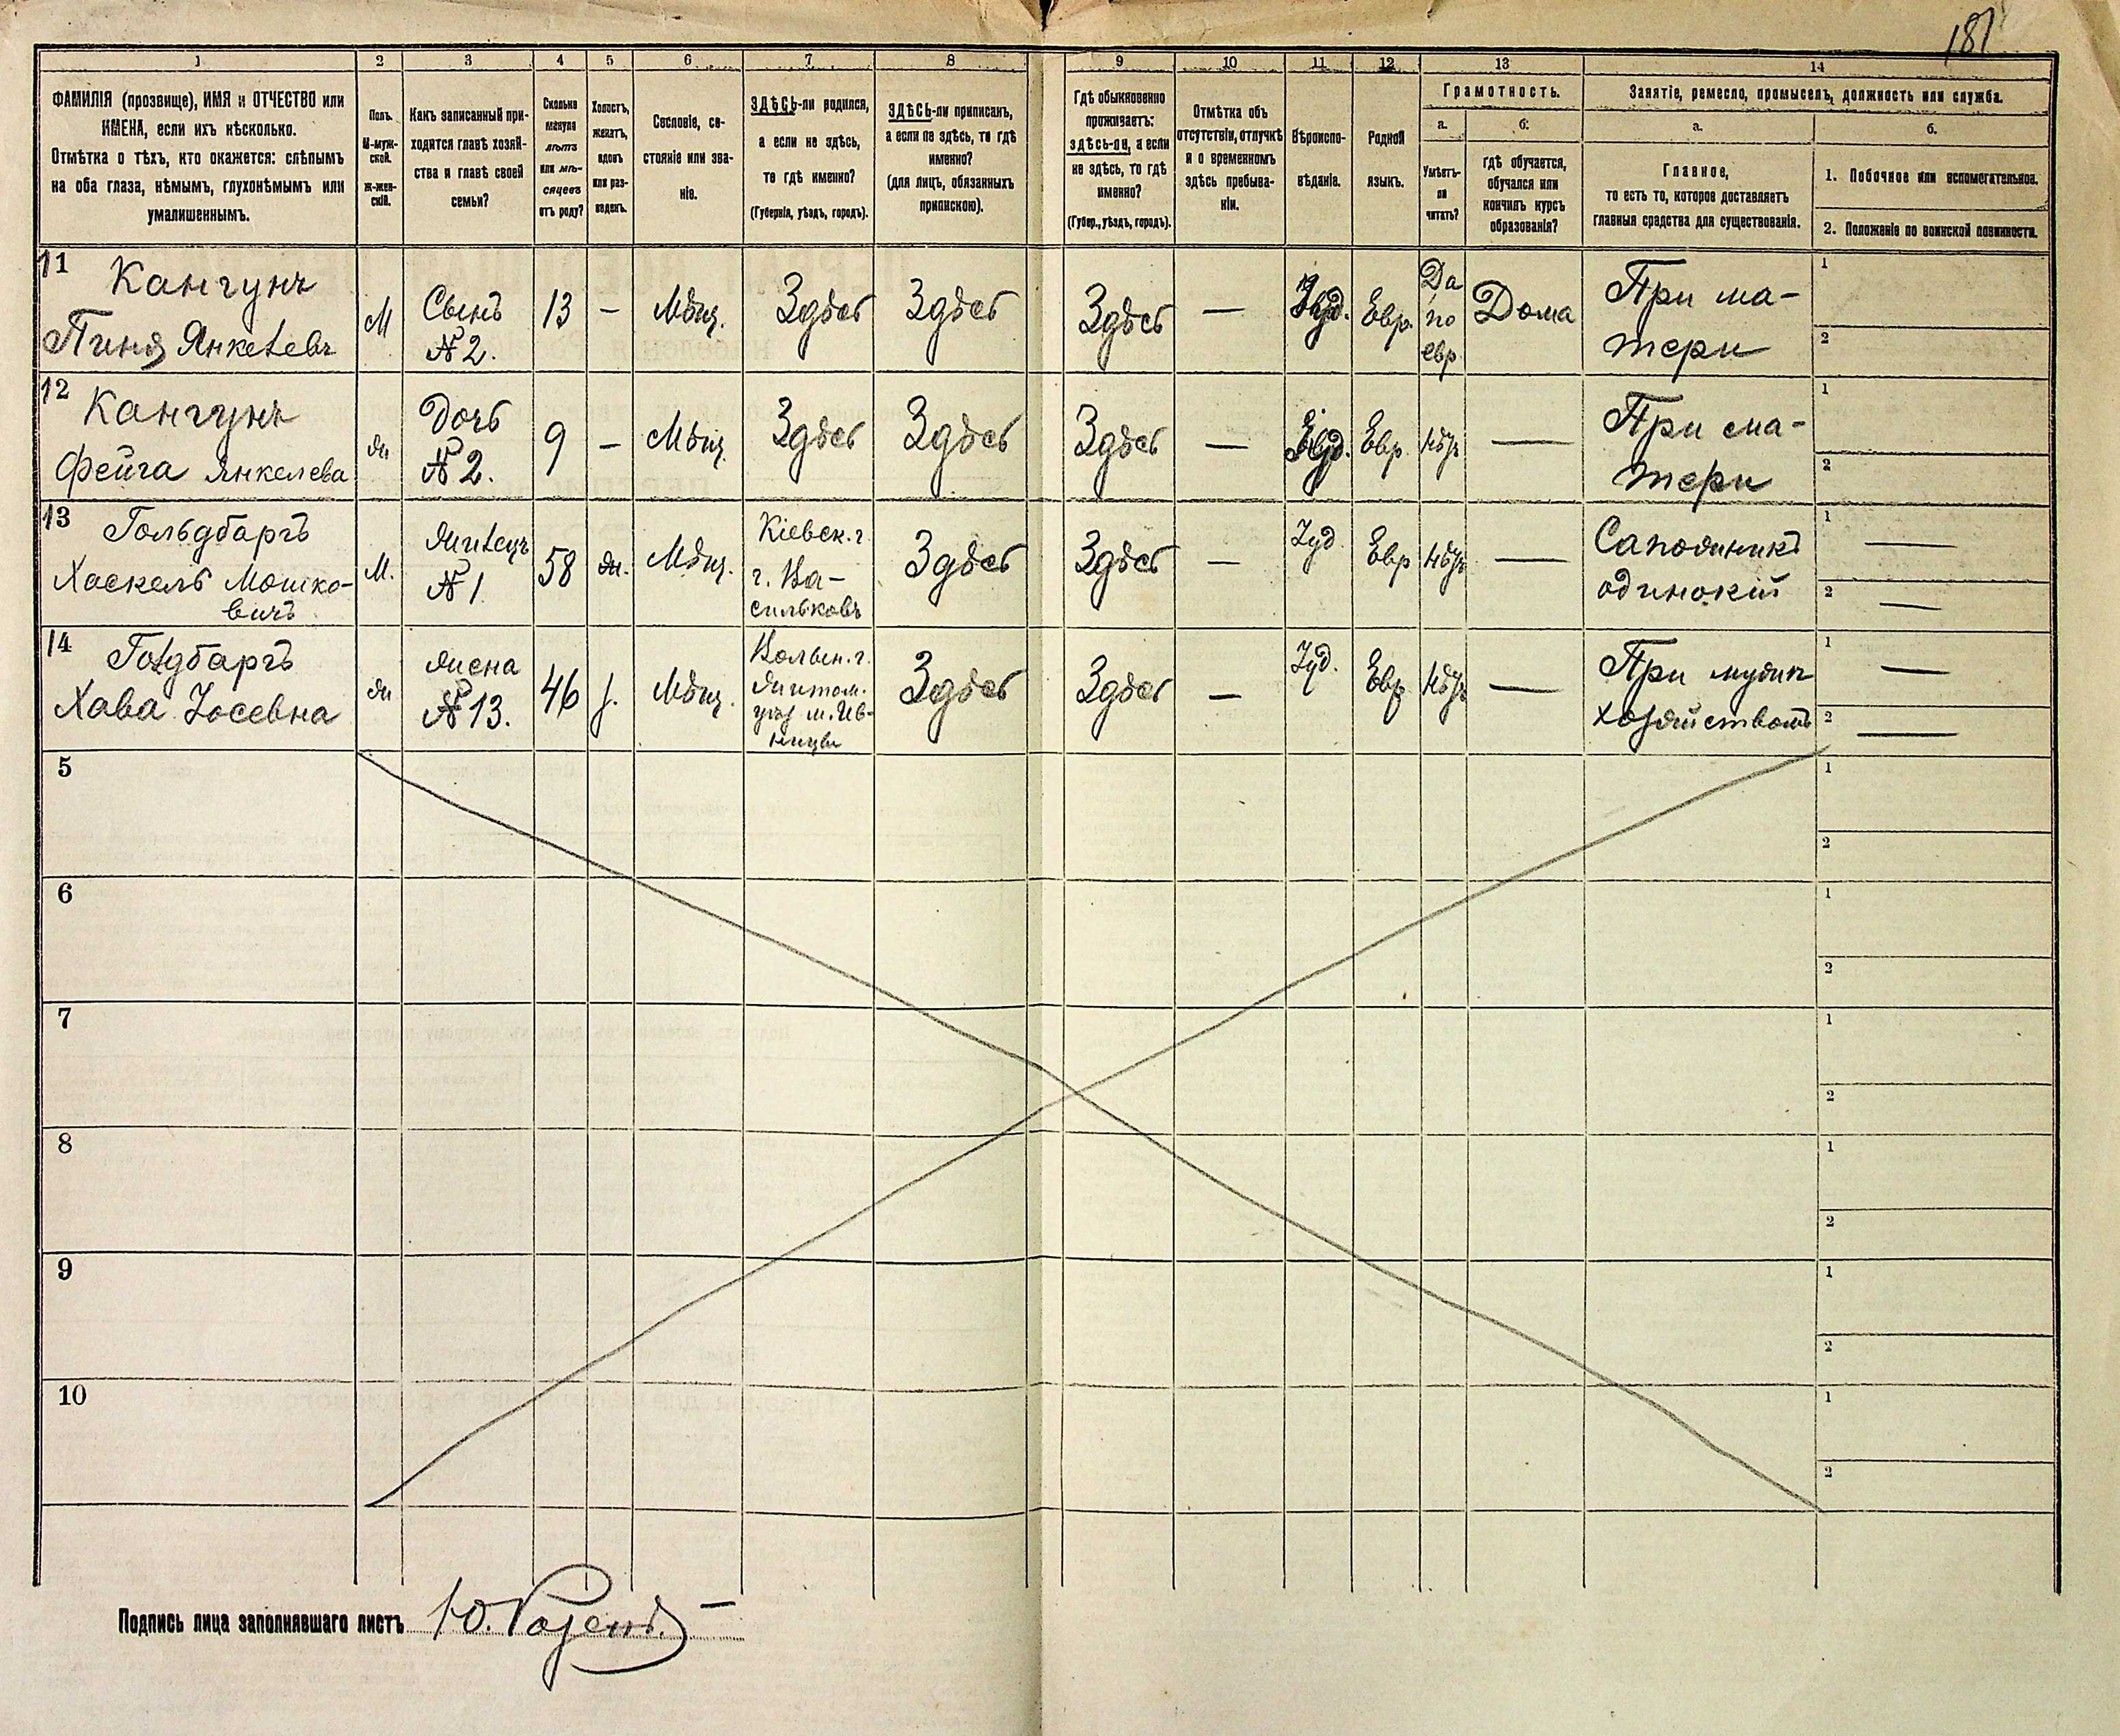 181
1 2 3 4 5 6 7 8 9 10 11 12 13 14
ФАМИЛІЯ (прозвище), ИМЯ и ОТЧЕСТВО или
ИМЕНА, если ихъ нѣсколько.
Отмѣтка о тѣхъ, кто окажется: слѣпымъ
на оба глаза, нѣмымъ, глухонѣмымъ или
умалишеннымъ.
Полъ.
М-муж-
ской.
ж-жен-
скій.
Какъ записанный при-
ходится главѣ хозяй-
ства и главѣ своей
семьи?
Сколько
минуло
лѣтъ
или мѣ-
сяцевъ
отъ роду?
Холостъ,
женатъ,
вдовъ
или раз-
веденъ.
Сословіе, со-
стояніе или зва-
ніе.
ЗДѢСЬ-ли родился,
а если не здѣсь,
то гдѣ именно?
(Губернія, уѣздъ, городъ).
ЗДѢСЬ-ли приписанъ,
а если не здѣсь, то гдѣ
именно?
(для лицъ, обязанныхъ
припискою).
Гдѣ обыкновенно
проживаетъ:
здѣсь-ли, а если
не здѣсь, то гдѣ
именно?
(Губер., уѣздъ, городъ).
Отмѣтка объ
отсутствіи, отлучкѣ
и о временномъ
здѣсь пребыва-
ніи.
Вѣроиспо-
вѣданіе.
Родной
языкъ.
Грамотность.
а.
Умѣетъ-
ли
читать?
б.
гдѣ обучается,
обучался или
кончилъ курсъ
образованія?
Занятіе, ремесло, промыселъ, должность или служба.
а.
Главное,
то есть то, которое доставляетъ
главныя средства для существованія.
б.
1. Побочное или вспомогательное.
2. Положеніе по воинской повинности.
11
Кангунъ
Пиня Янкелевъ
М
Сынъ
№ 2.
13
–
Мѣщ.
Здѣсь
Здѣсь
Здѣсь
—
Іуд.
Евр.
Да
по
евр
Дома
При ма-
тери
1
2
12
Кангунъ
Фейга Янкелева
ж
Дочь
№ 2.
9
–
Мѣщ.
Здѣсь
Здѣсь
Здѣсь
—
Іуд.
Евр.
Нѣтъ
—
При ма-
тери
1
2
13
Гольдбаргъ
Хаскель Мошко-
вичъ
М.
Жилецъ
№ 1
58
ж.
Мѣщ.
Кіевск. г.
г. Ва-
сильковъ
Здѣсь
Здѣсь
—
Іуд
Евр
Нѣтъ
—
Сапожникъ
одинокій
1 —
2 —
14
Голдбаргъ
Хава Іосевна
ж
Жена
№ 13.
46
з.
Мѣщ.
Волын. г.
Житом.
уѣз м. Ив-
ницы
Здѣсь
Здѣсь
—
Іуд.
Евр
Нѣтъ
—
При мужѣ
хозяйствомъ
1 —
2 —
5
1
2
6
1
2
7
1
2
8
1
2
9
1
2
10
1
2
Подпись лица заполнявшаго листъ